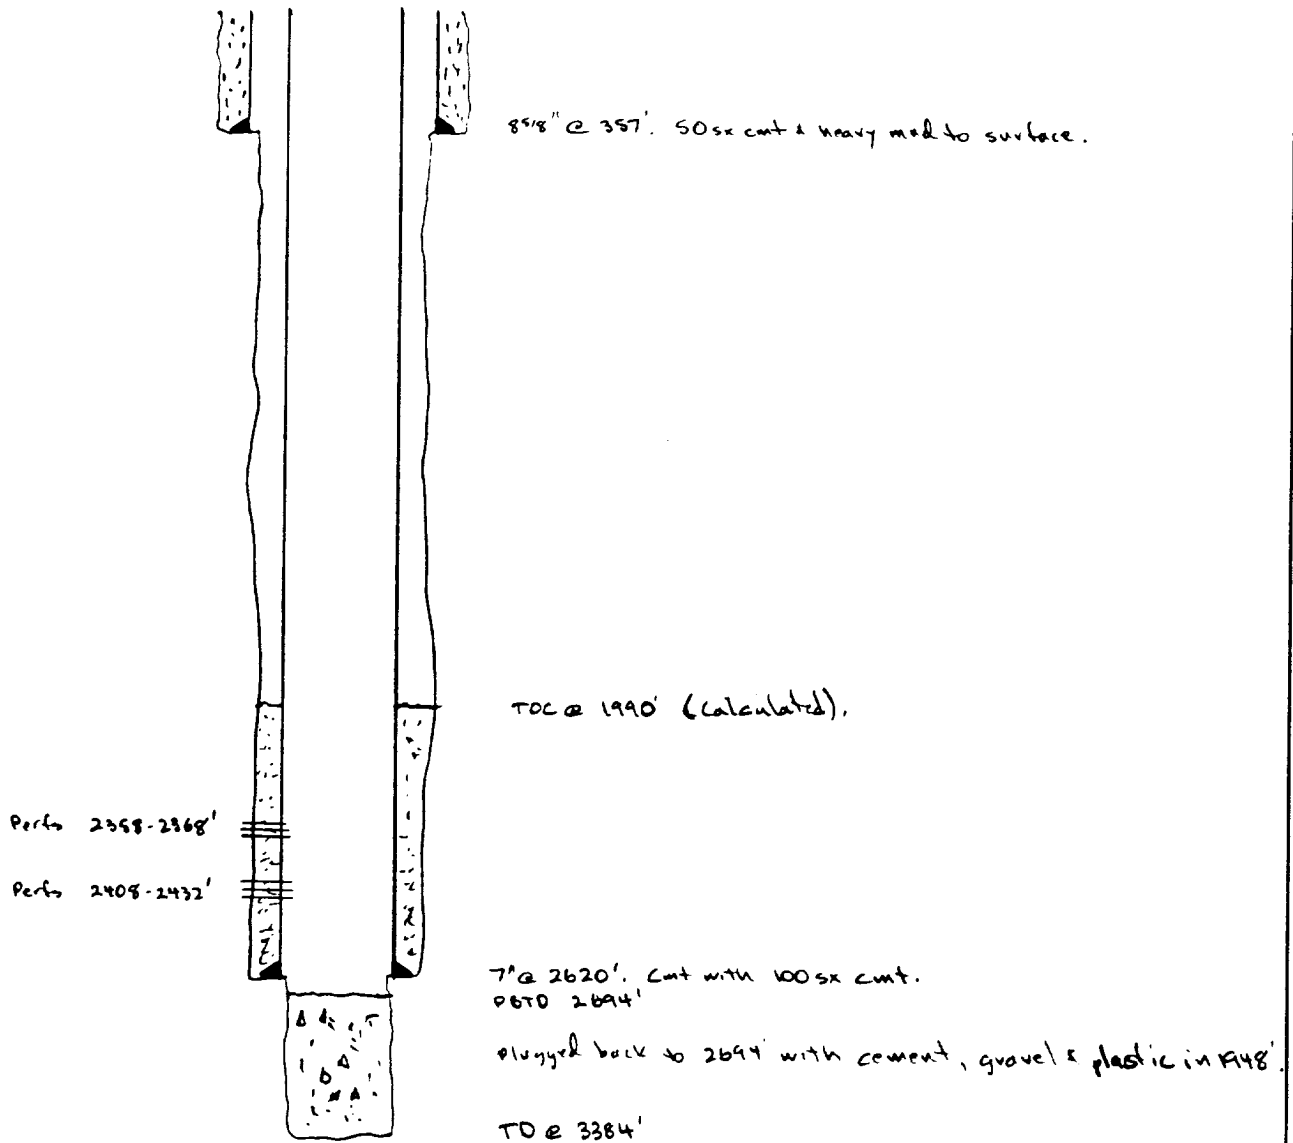 8 5/8" @ 357'. 50 sx cmt & heavy mud to surface.
TOC @ 1990' (calculated).
Perfs 2358-2368'
Perfs 2408-2432'
7" @ 2620'. Cmt with 100 sx cmt.
PBTD 2694'
Plugged back to 2694' with cement, gravel & plastic in 1948'.
TD @ 3384'